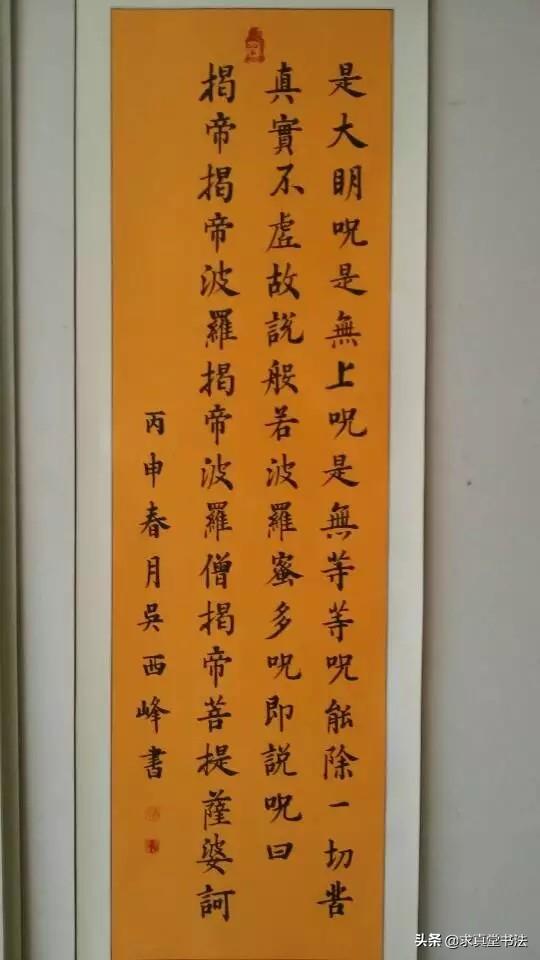 是大明呪是無上呪是無等等呪能除一切苦
真實不虛故說般若波羅蜜多呪即說呪曰
揭帝揭帝波羅揭帝波羅僧揭帝菩提薩婆訶
丙申春月吳西峰書
头条 @求真堂书法